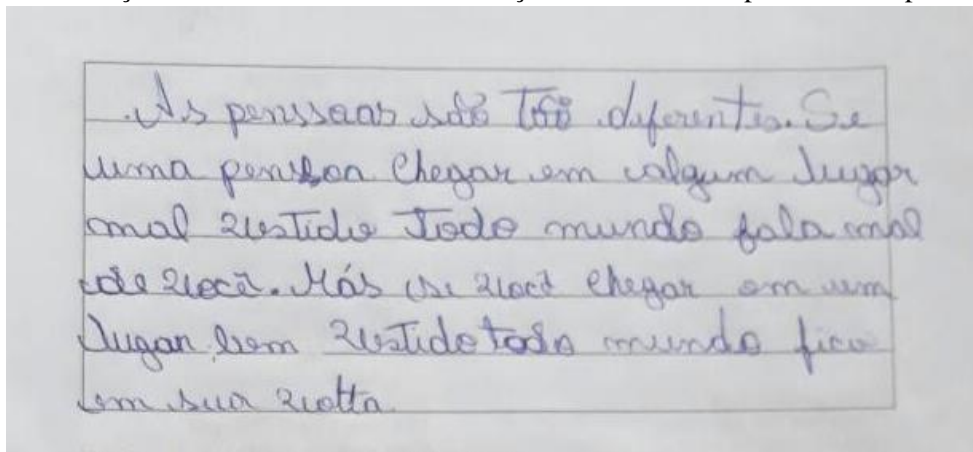 As penssoas são tão diferentes. Se
uma penssoa chegar em algum lugar
mal vestido todo mundo fala mal
de você. Más se você chegar em um
lugar bem vestido todo mundo fica
em sua volta.